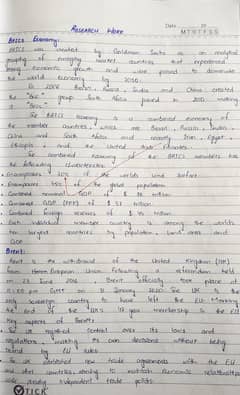 RESEARCH WORK
Date 20
M T W T F S S
BRICS Economy:
BRICS was created by Goldman Sachs as an analytical
grouping of emerging market countries that experienced
economic growth and were poised to dominate
the world economy by 2050.
In 2006 Brazil, Russia, India and China created
the group South Africa joined in 2010 making
it "BRICS"
The BRICS economy is a combined economy of
the member countries which are Brazil, Russia, India,
China and South Africa and recently Iran, Egypt,
Ethiopia and the United Arab Emirates.
The combined economy of the BRICS members has
the following characteristics
Encompasses 30% of the worlds land surface
Encompasses 45% of the global population
Combined nominal GDP of $
Combined GDP (PPP) of $
Combined foreign reserves of $
Each individual member country is among the worlds
ten largest countries by population, land area and
GDP
Brexit:
Brexit is the withdrawal of the United Kingdom (UK)
from the European Union following a referendum held
on 23 June 2016. Brexit officially took place at
GMT on 31 January 2020. The UK is the
only sovereign country to have left the EU. Marking
the end of the UK's 47 year membership in the EU
Key aspects of Brexit:
The UK regained control over its laws and
regulations, making its own decisions without being
bound by EU rules
The UK established new trade agreements with the EU
and other countries, aiming to maintain economic relationships
while pursuing independent trade policies
TICK